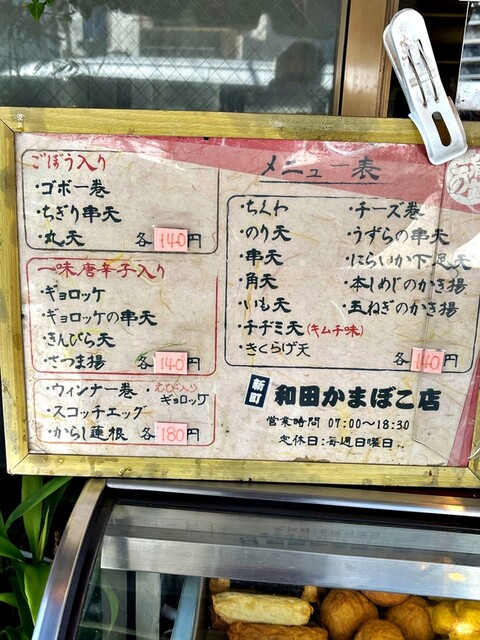 メニュー表
ごぼう入り
・ゴボー巻
・ちぎり串天
・丸天 各140円
一味唐辛子入り
・ギョロッケ
・ギョロッケの串天
・きんぴら天
・さつま揚 各140円
・ウィンナー巻 ・えび入りギョロッケ
・スコッチエッグ
・からし蓮根 各180円
・ちくわ
・のり天
・串天
・角天
・いも天
・チヂミ天(キムチ味)
・きくらげ天
・チーズ巻
・うずらの串天
・にらいか下足天
・本しめじのかき揚
・玉ねぎのかき揚
各140円
新町 和田かまぼこ店
営業時間 07:00〜18:30
定休日:毎週日曜日